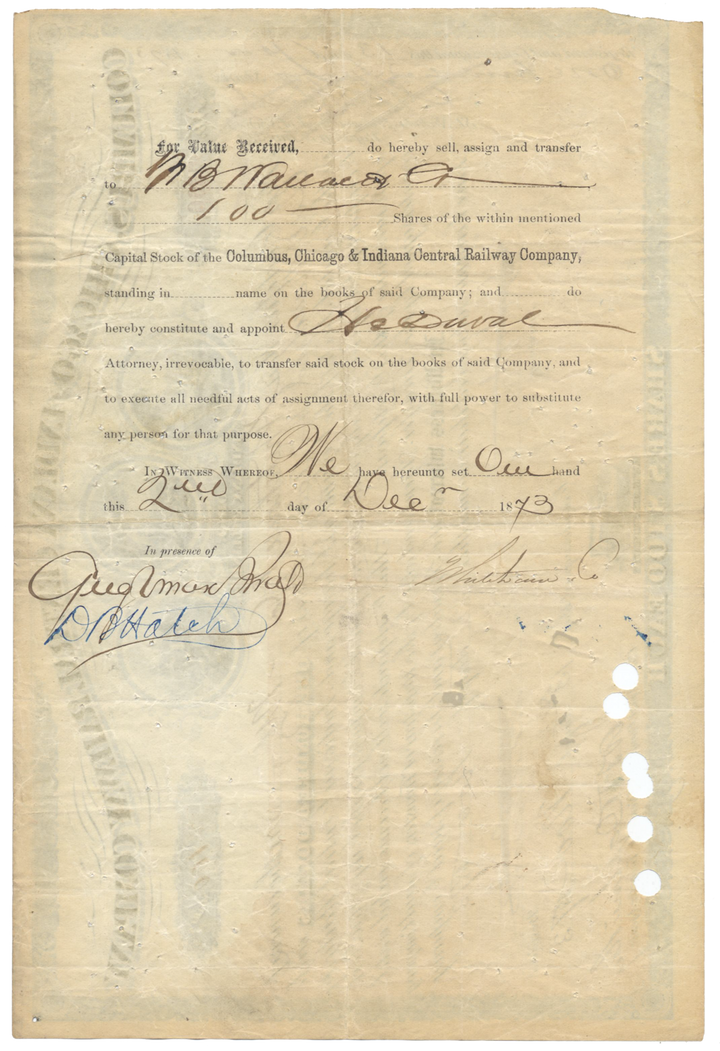 For Value Received, do hereby sell, assign and transfer
to W B Wallace & Co
100 Shares of the within mentioned
Capital Stock of the Columbus, Chicago & Indiana Central Railway Company,
standing in name on the books of said Company; and do
hereby constitute and appoint H C Duval
Attorney, irrevocable, to transfer said stock on the books of said Company, and
to execute all needful acts of assignment therefor, with full power to substitute
any person for that purpose.
In Witness Whereof, We have hereunto set Our hand
this 2nd day of Decr 1873
In presence of
D B Hatch